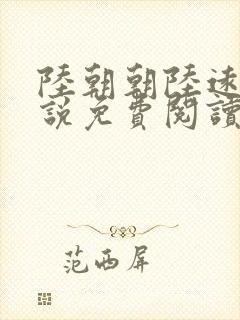 陸朝朝陸遠
說免費閱讀
范西屏